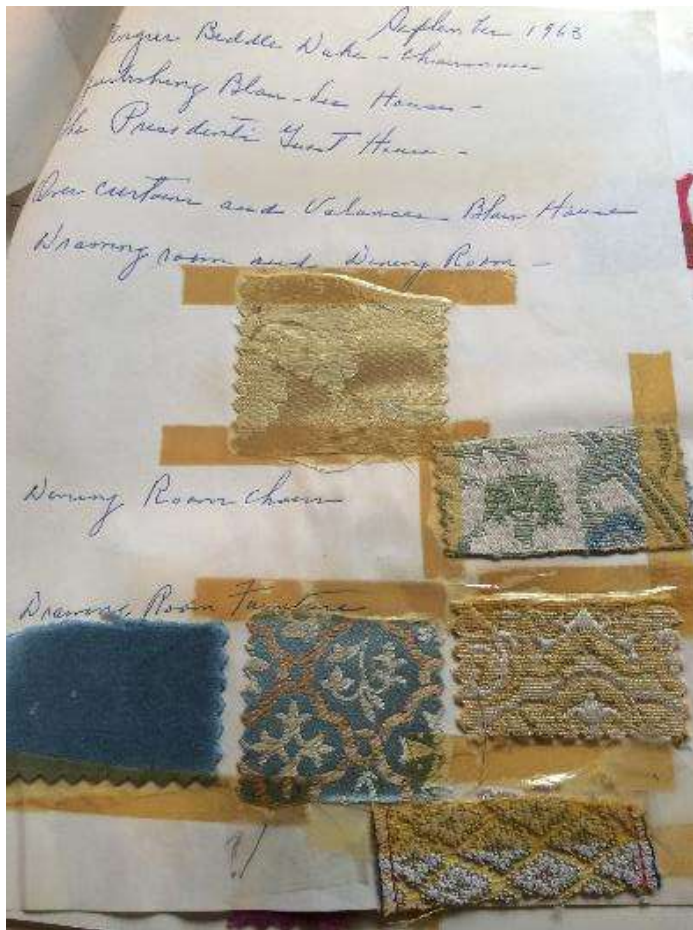 September 1963
Biddle Duke - Chairman
Blair-Lee House -
The President's Guest House -
Over curtains and Valances Blair House
Drawing room and Dining Room -
Dining Room Chairs
Drawing Room Furniture